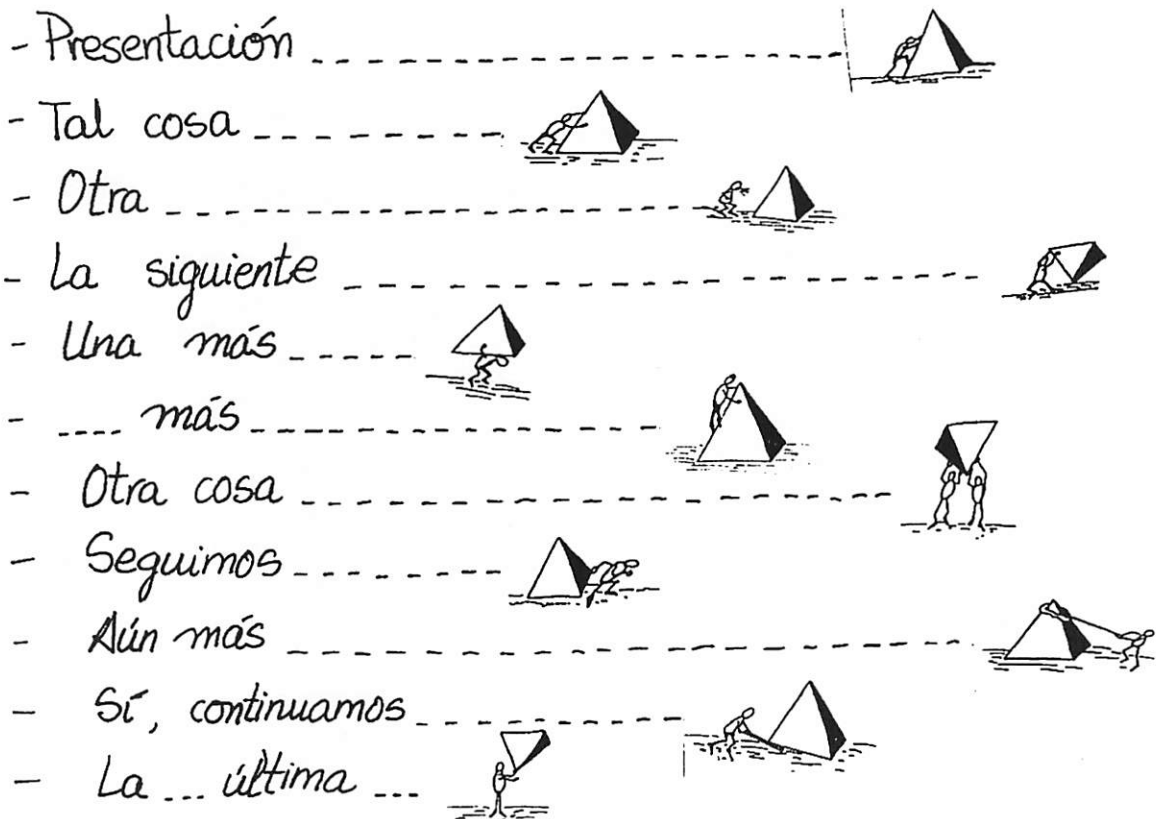 - Presentación
- Tal cosa
- Otra
- La siguiente
- Una más
- .... más
- Otra cosa
- Seguimos
- Aún más
- Sí, continuamos
- La ... última ...